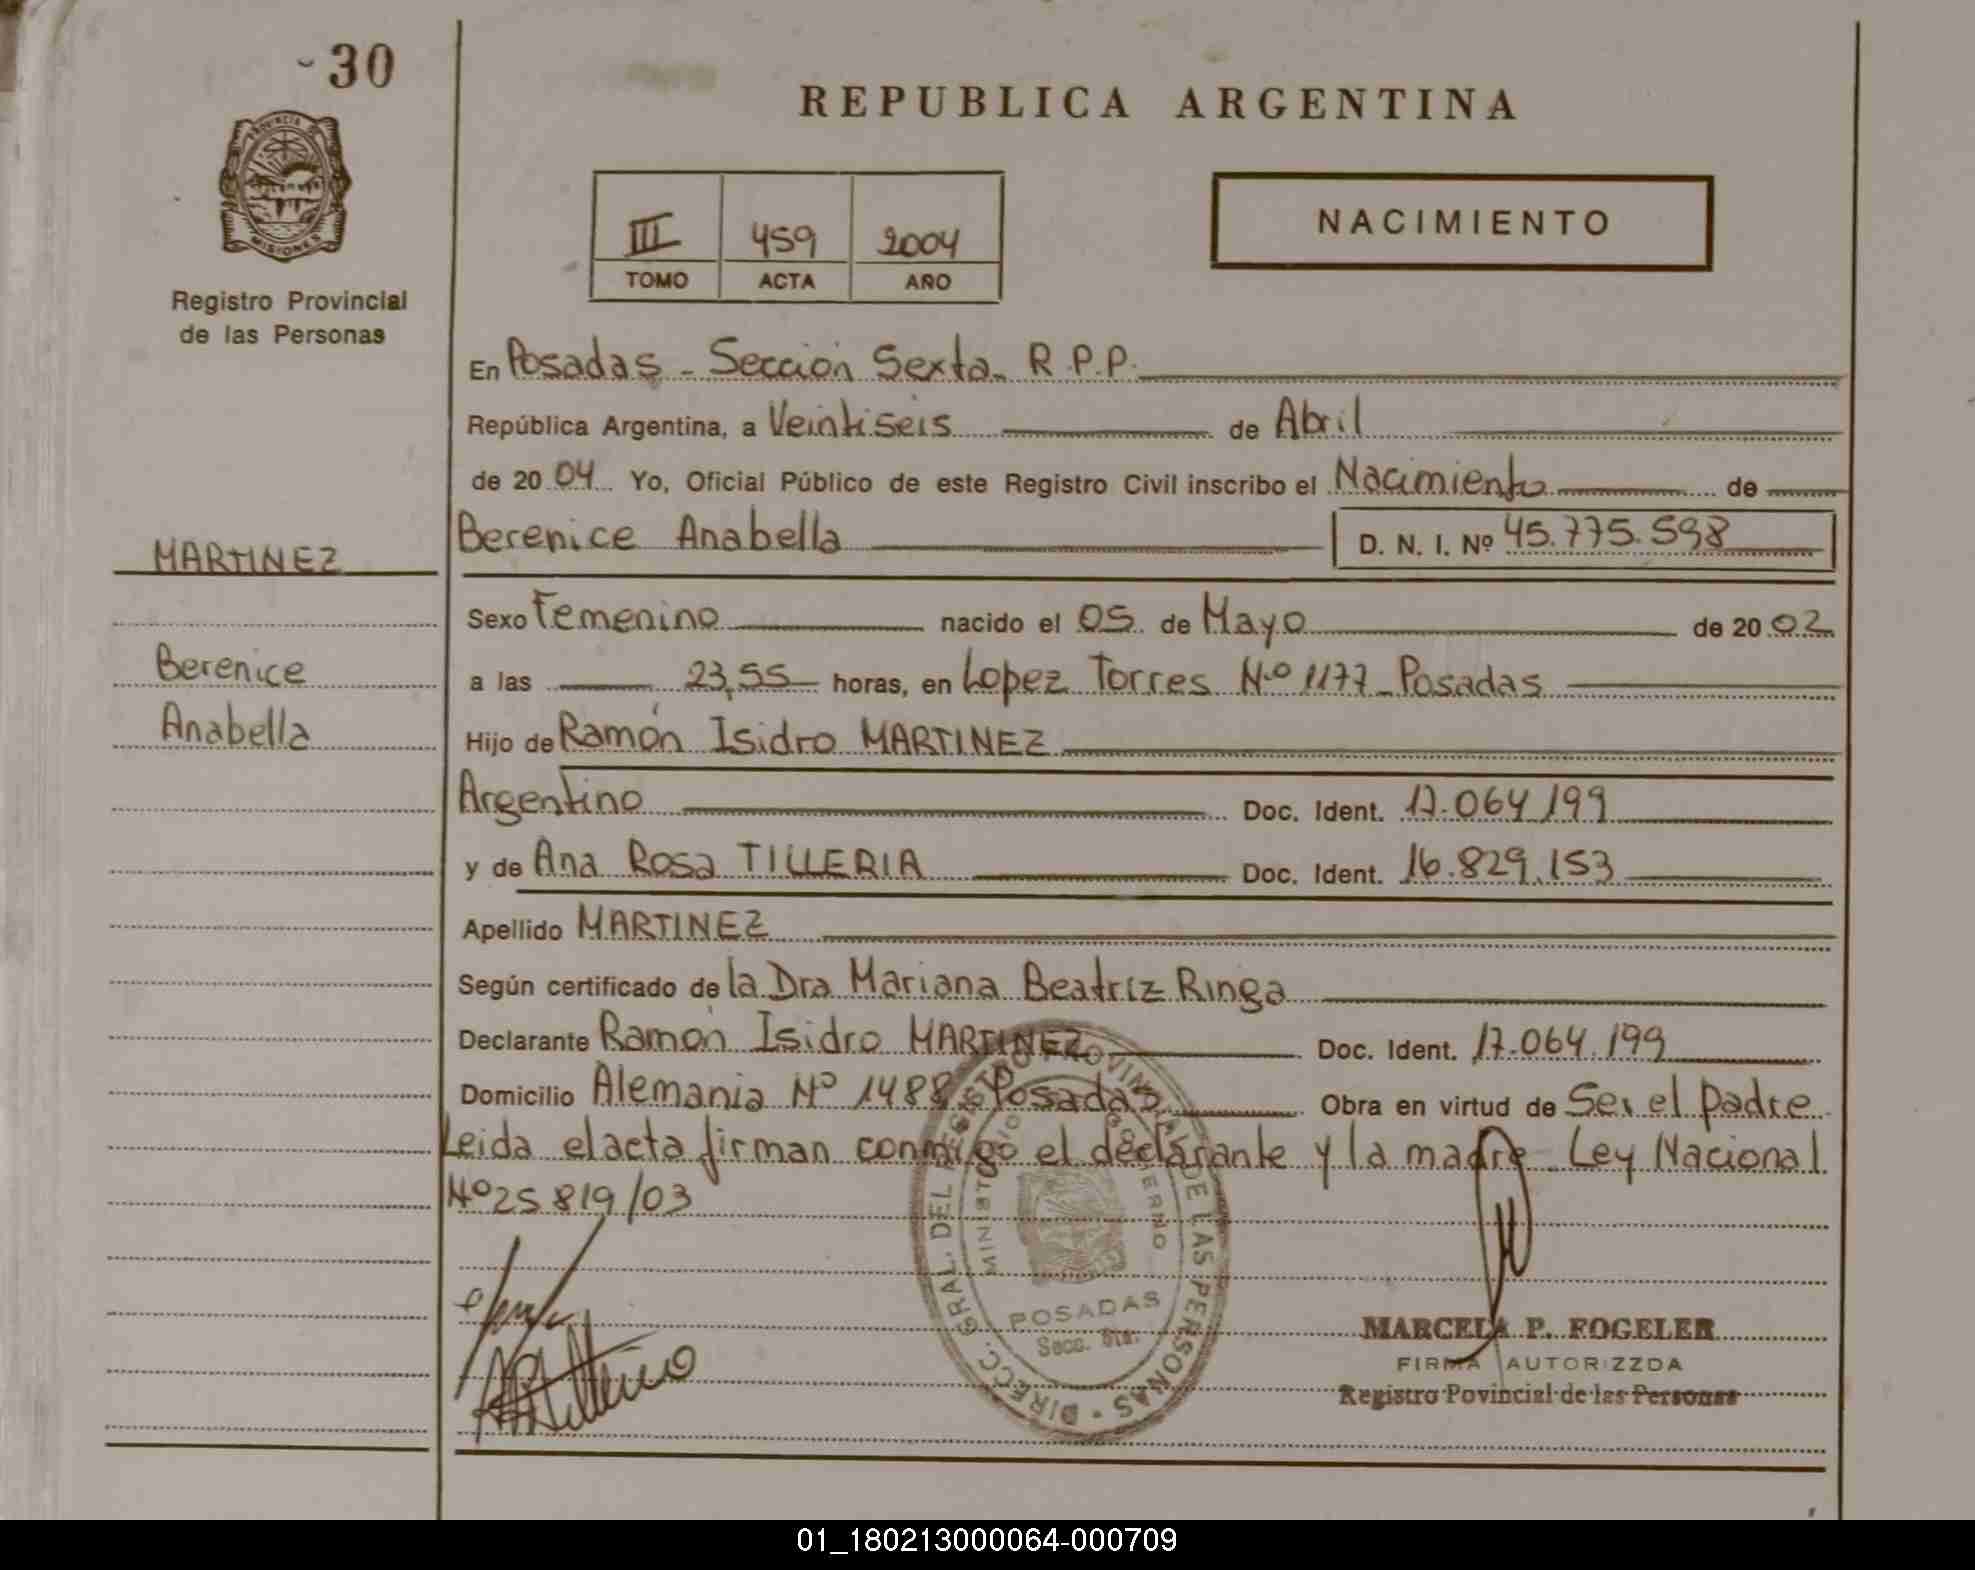 30
PROVINCIA DE
MISIONES
Registro Provincial
de las Personas
MARTINEZ
Berenice
Anabella
REPUBLICA ARGENTINA
III 459 2004
TOMO ACTA AÑO
NACIMIENTO
En Posadas - Sección Sexta - R.P.P.
República Argentina, a Veintiseis de Abril
de 20 04 Yo, Oficial Público de este Registro Civil inscribo el Nacimiento de
Berenice Anabella D. N. I. Nº 45.775.598
Sexo Femenino nacido el 05 de Mayo de 20 02
a las 23,55 horas, en Lopez Torres N.º 1177 - Posadas
Hijo de Ramón Isidro MARTINEZ
Argentino Doc. Ident. 17.064.199
y de Ana Rosa TILLERIA Doc. Ident. 16.829.153
Apellido MARTINEZ
Según certificado de la Dra Mariana Beatriz Ringa
Declarante Ramón Isidro MARTINEZ Doc. Ident. 17.064.199
Domicilio Alemania Nº 1488 Posadas Obra en virtud de Ser el padre
Leida el acta firman conmigo el declarante y la madre - Ley Nacional
Nº 25819/03
DIRECC. GRAL. DEL REGISTRO PROVINCIAL DE LAS PERSONAS
MINISTERIO GOBIERNO
POSADAS
Secc. 6ta.
MARCELA P. FOGELER
FIRMA AUTORIZZDA
Registro Povincial de las Personas
01_180213000064-000709